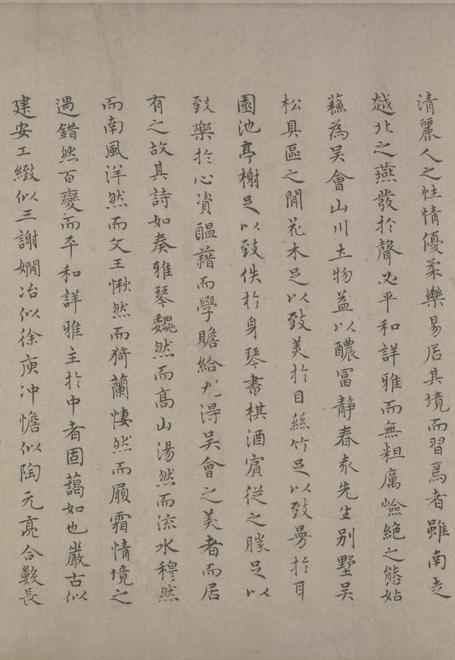 清麗人之性情優柔樂易居其境而習焉者雖南走
越北之燕發於聲必平和詳雅而無粗厲嶮絕之態姑
蘓為吳會山川土物益以醲富静春袁先生别墅吴
松具區之間花木足以致美於目絲竹足以致曼於耳
園池亭榭足以致佚於身琴書棋酒賓從之勝足以
致樂於心資醞藉而學贍給尤得吴會之美者而居
有之故其詩如奏雅琴巍然而高山湯然而流水穆然
而南風洋然而文王愀然而猗蘭悽然而履霜情境之
遇錯然百變而平和詳雅主於中者固藹如也嚴古似
建安工緻似三謝嫺冶似徐庾冲憺似陶元亮合數長